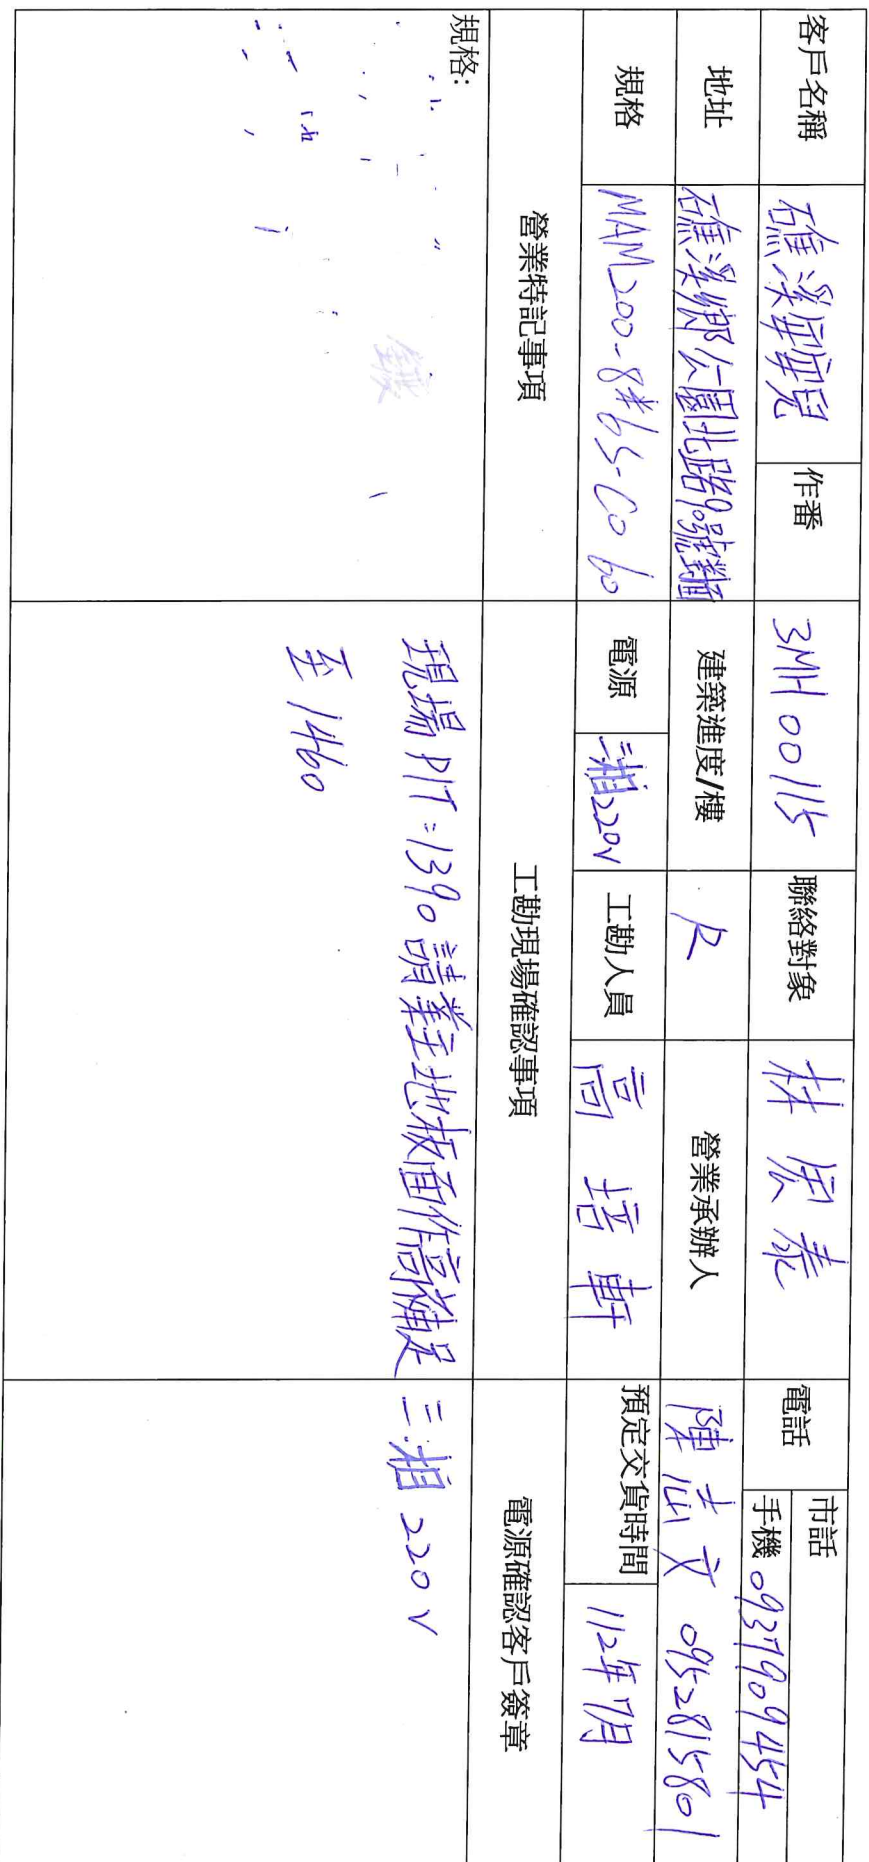 客戶名稱 礁溪寶貝 作番 3MH00115 聯絡對象 林宏泰 電話 市話
手機 0937909454
地址 礁溪鄉公園北路90號對面 建築進度/樓 R 營業承辦人 陳志文 0952815801
規格 MAM200-8#6S-CO 60 電源 三相220V 工勘人員 高培軒 預定交貨時間 112年7月
營業特記事項 工勘現場確認事項 電源確認客戶簽章
規格:
現場PIT=1390請業主地板面作高補足 三相220V
至1460